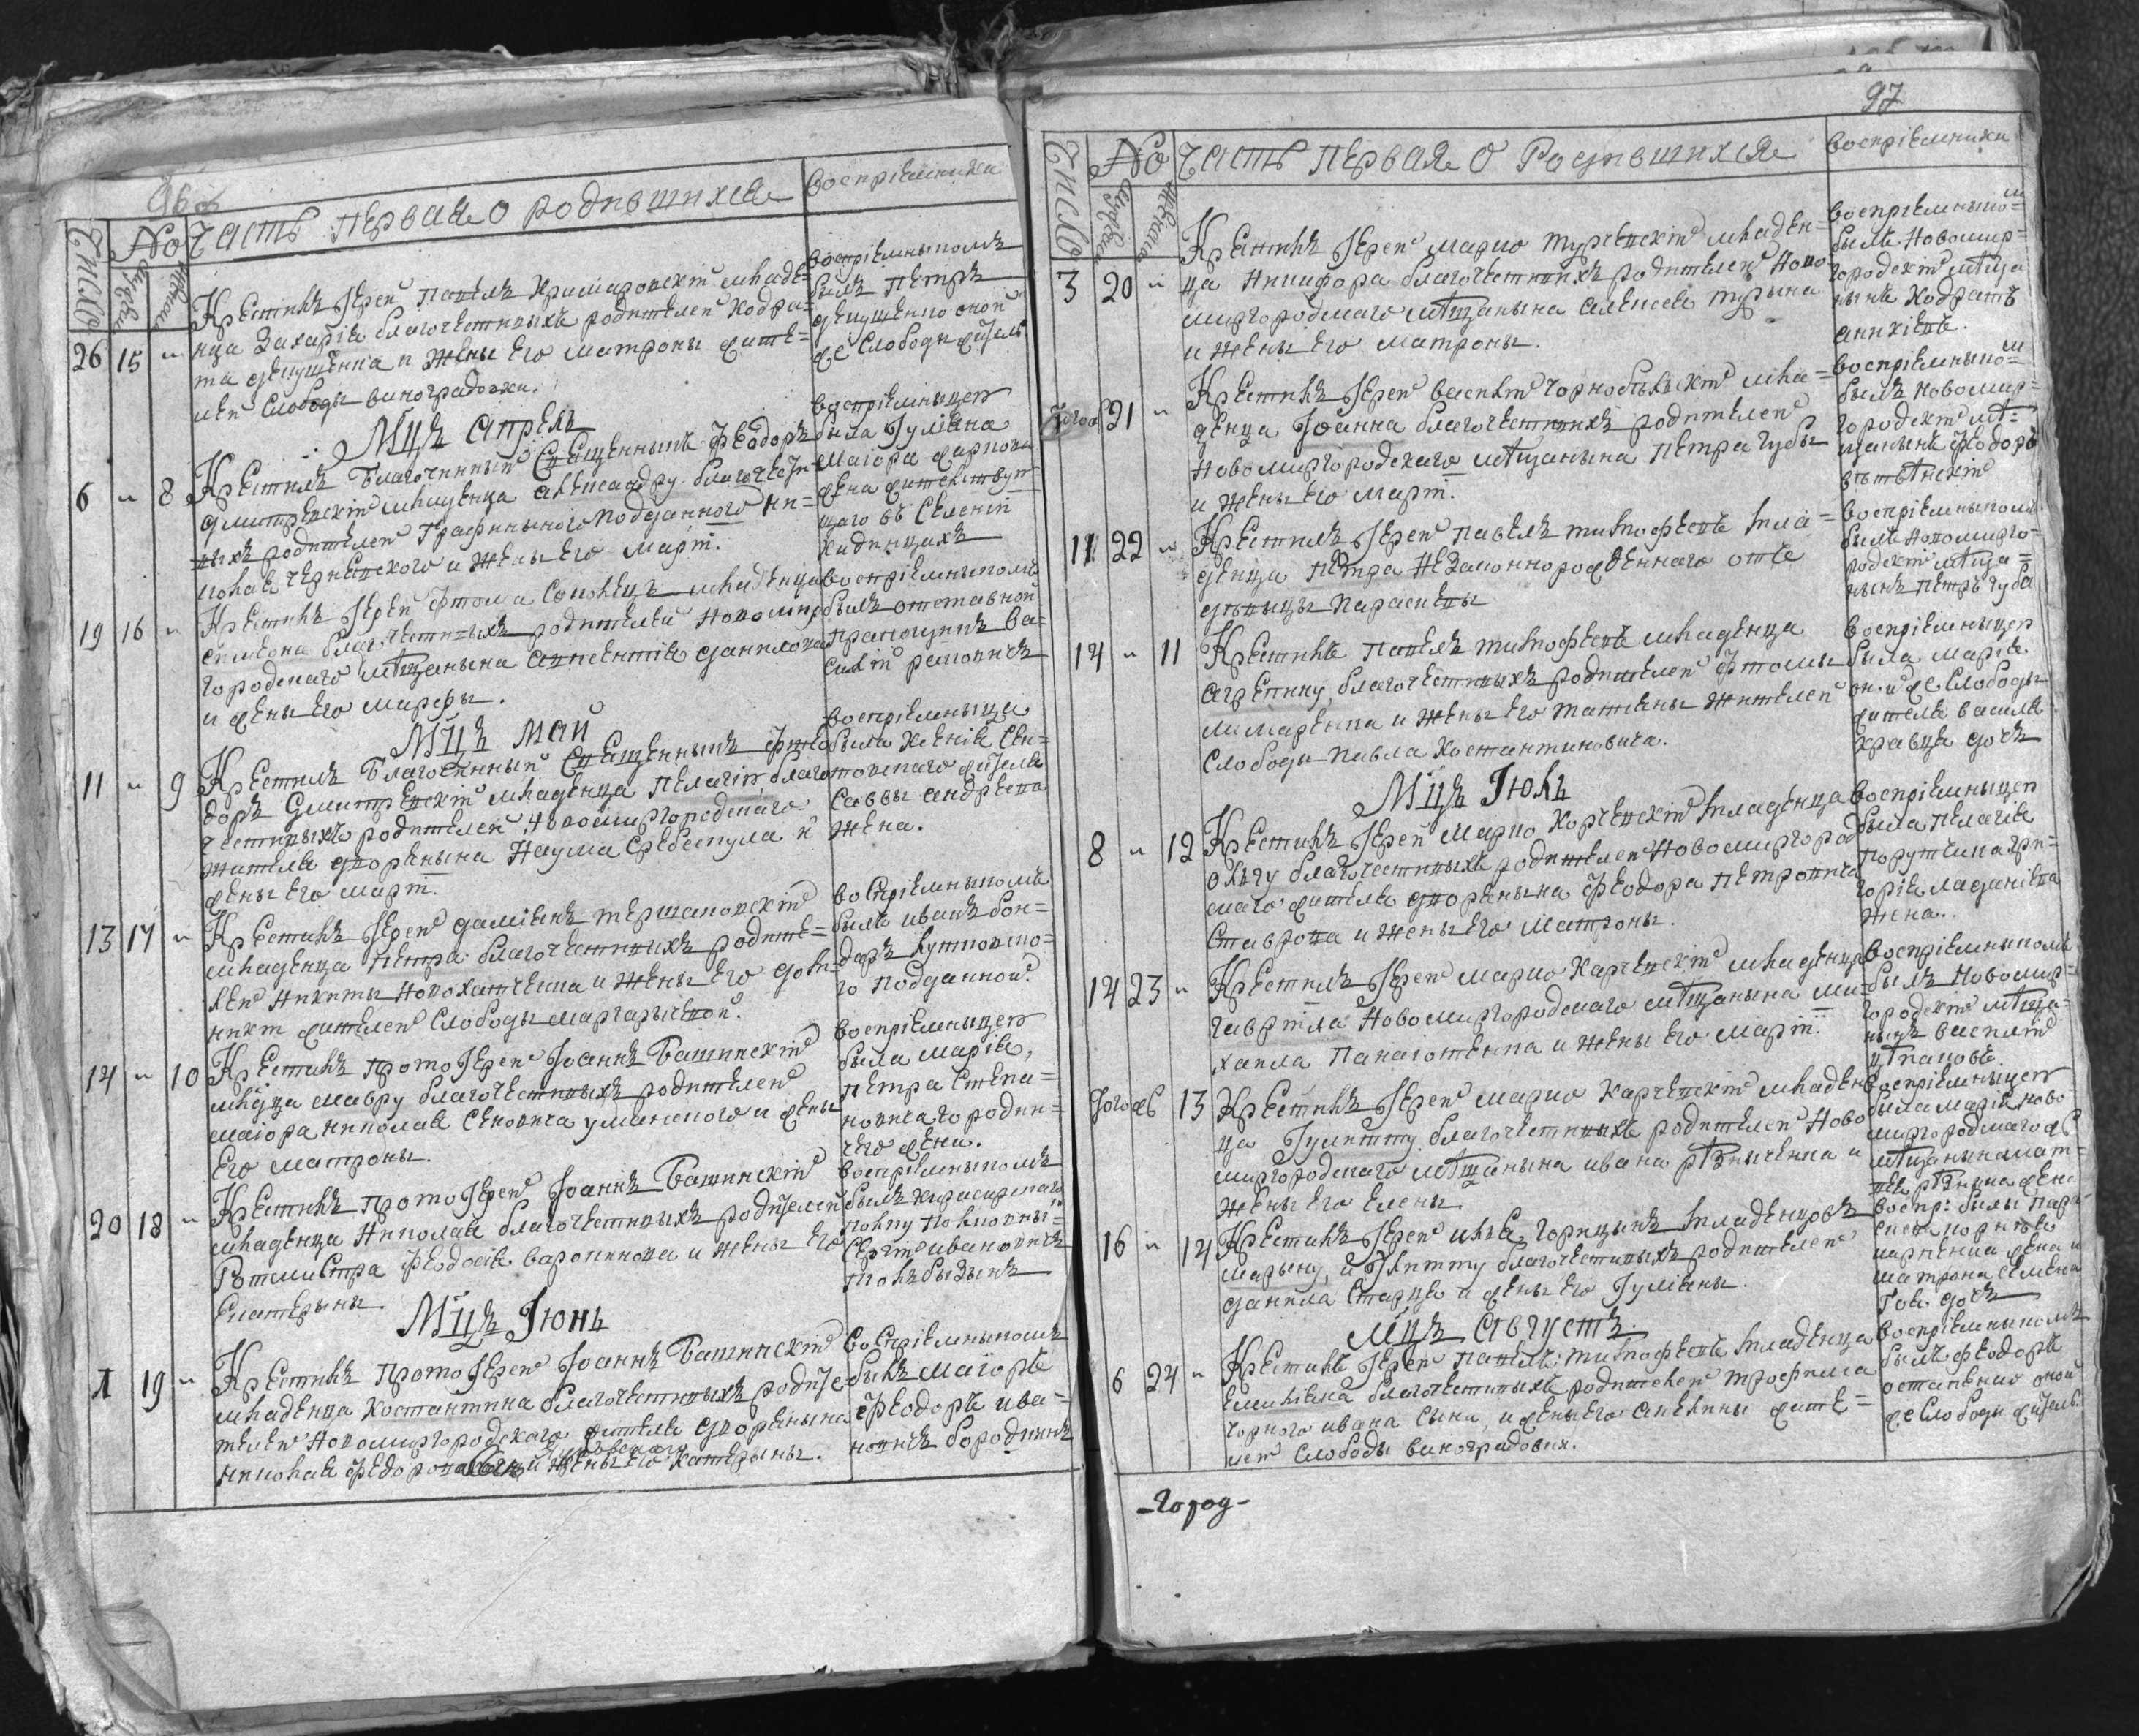 96 об
Число
No
Мужеска
Женска
Часть первая о родившихся
восприемники
26 15 "
Крестилъ Іерей Павелъ Крижановскій младе=
нца Захарія благочестивыхъ родителей Кодра=
та Дейнущенка и жены его Матроны жите=
лей слободы Виноградовки.
восприемникомъ
былъ Петръ
Дейнущенко оной
же слободы житель
Мцъ Апрель
6 " 8
Крестилъ Благочинный Священникъ Феодоръ
Дмитревскій младенца Александру благочести=
выхъ родителей Графининого подданного Ни=
колая Черневского и жены его Маріи.
восприемницею
была Іуліана
Маіора
жена жителствую
щаго въ селеніи
19 16 "
Крестилъ Іерей Фтома Соколецъ младенца
Симеона благочестивыхъ родителей Новомир
городскаго мѣщанина Авксентія Данилова
и жены его Марфы.
восприемникомъ
былъ отставной
прапощикъ Ва=
силій
Мцъ Май
11 " 9
Крестилъ Благочинный Священникъ Фео
доръ Дмитревскій младенца Пелагію благо
честивыхъ родителей Новомиргородскаго
жителя дворянина Наума Сребестула и
жены его Маріи.
восприемница
была Ксенія Сен=
товскаго жителя
Саввы Андреева
жена.
13 17 "
Крестилъ Іерей Даміянъ Тершаповскій
младенца Петра благочестивыхъ родите=
лей Никиты Новохатченка и жены его Дом=
никіи жителей слободы Маргаритевой.
восприемникомъ
былъ Иванъ Бон=
даръ Кутповско=
го подданной
14 " 10
Крестилъ протоіерей Іоаннъ Башинскій
млнца Мавру благочестивыхъ родителей
маіора Николая Сеновича Уманского и жены
его Матроны.
восприемницею
была Марія,
Петра Степа=
новича Городни=
чего жена.
20 18 "
Крестилъ протоіерей Іоаннъ Башинскій
младенца Николая благочестивыхъ родителей
Ротмистра Феодосія Варопинова и жены его
Екатерины
восприемникомъ
былъ Кирасирскаго
полку полковни=
Сергій Ивановичъ
Мцъ Іюнь
1 19 "
Крестилъ протоіерей Іоаннъ Башинскій
младенца Костантина благочестивыхъ роди
телей Новомиргородскаго жителя дворянина
Николая Федорова и жены его Катерины.
восприемникомъ
былъ маіоръ
Феодоръ Ива=
новичъ Бородкинъ
97
Число
No
Мужеска
Женска
Часть первая о родившихся
восприемники
3 20 "
Крестилъ Іерей Марко Турчевскій младен=
ца Никифора благочестивыхъ родителей Ново
миргородскаго мѣщанина Алексея Турына
и жены его Матроны.
восприемником
былъ Новомир=
городскій мѣща
нинъ Кодратъ
Анихіевъ.
Тогож 21 "
Крестилъ Іерей Василій Чорнобильскій мла=
денца Іоанна благочестивыхъ родителей
Новомиргородскаго мѣщанина Петра Губы
и жены его Маріи.
восприемником
былъ Новомир=
городскій мѣ=
щанинъ Феодоръ
11 22 "
Крестилъ Іерей Павелъ Тимофеевъ мла=
денца Петра незаконнорожденнаго отъ
дѣвицы Параскевы
восприемникомъ
былъ Новомирго=
родскій мѣща=
нинъ Петръ Губа
14 " 11
Крестилъ Павелъ Тимофеевъ младенца
Агрепину благочестивыхъ родителей Фтомы
Лимаренка и жены его Татіяны жителей
слободы Павла Костантиновича.
восприемницею
была Марія
оной же слободы
жителя Василя
Кравця дочъ
Мцъ Іюль
8 " 12
Крестилъ Іерей Марко Корчевскій младенца
Ольгу благочестивыхъ родителей Новомиргород
скаго жителя дворянина Феодора Петровича
Ставрова и жены его Матроны.
восприемницею
была Пелагія
порутчика Гри=
горія
жена.
14 23 "
Крестилъ Іерей Марко Карчевскій младенца
Гавріила Новомиргородскаго мѣщанина Ми=
хаила Панаіотенка и жены его Маріи.
восприемникомъ
былъ Новомир=
городскій мѣща=
нинъ Василій
Тогожъ 13
Крестилъ Іерей Марко Карчевскій младен
ца Іулитту благочестивыхъ родителей Ново
миргородскаго мѣщанина Ивана Рѣзниченка и
жены его Елены
восприемницею
была Марія ново
миргородскаго жъ
мѣщанина Мат=
вея Рѣзника жена
16 " 14
Крестилъ Іерей Илья Горицынъ младенцовъ
Марыну, и Улитту благочестивыхъ родителей
Данила Старца и жены его Іуліяны.
воспр: были Пара
жена и
Матрона Семена
дочъ
Мцъ Августъ.
6 24 "
Крестилъ Іерей Павелъ Тимофеевъ младенца
Емиліяна благочестивыхъ родителей Трофима
Чорного Ивана сына, и жены его Акилины жите=
лей слободы Виноградовки.
восприемникомъ
былъ Феодоръ
Остапенко оной
же слободы житель.
-Город-